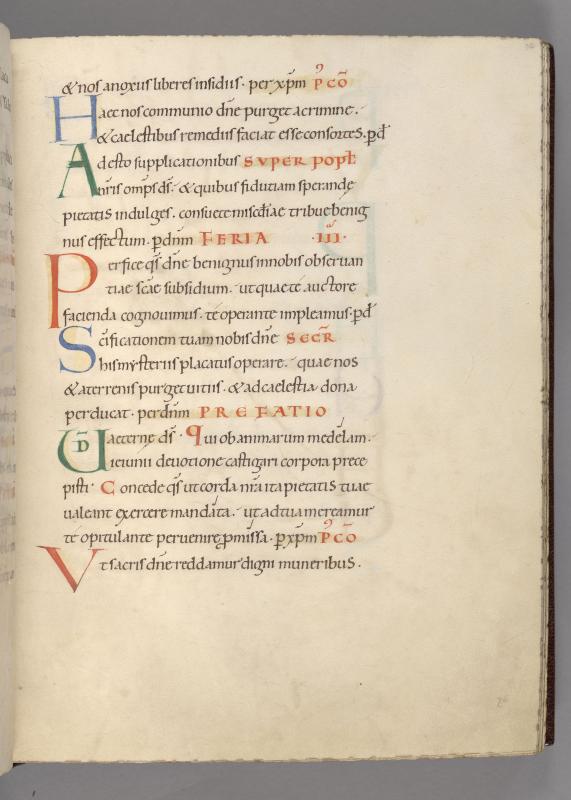 & nos a noxus liberes insidiis · per xp̄m PᵒCŌ
Haec nos communio dn̄e purget a crimine ·
& caelestibus remediis faciat esse consortes · p̄ d̄
Adesto supplicationibus SVPER POPL̄
nr̄is omp̄s ds̄ · & quibus fidutiam sperande
pietatis indulges · consuete mīscd̄iae tribue benig
nus effectum · p̄ dn̄m FERIA · III ·
Perfice qs̄ dn̄e benignus in nobis observan
tiae sc̄ae subsidium · ut quae te auctore
facienda cognovimus · te operante impleamus · p̄ d̄
Sc̄ificationem tuam nobis dn̄e SECR̄
his mysteriis placatus operare · quae nos
& a terrenis purget vitiis · & ad caelestia dona
perducat · per dn̄m PREFATIO
VD̄ aeterne ds̄ · Qui ob animarum medelam ·
ieiunii devotione castigari corpora prece
pisti · Concede qs̄ ut corda nr̄a ita pietatis tuae
valeant exercere mandata · ut ad tua mereamur
te opitulante pervenire p̄missa · p̄ xp̄m PᵒCŌ
Vt sacris dn̄e reddamur digni muneribus ·